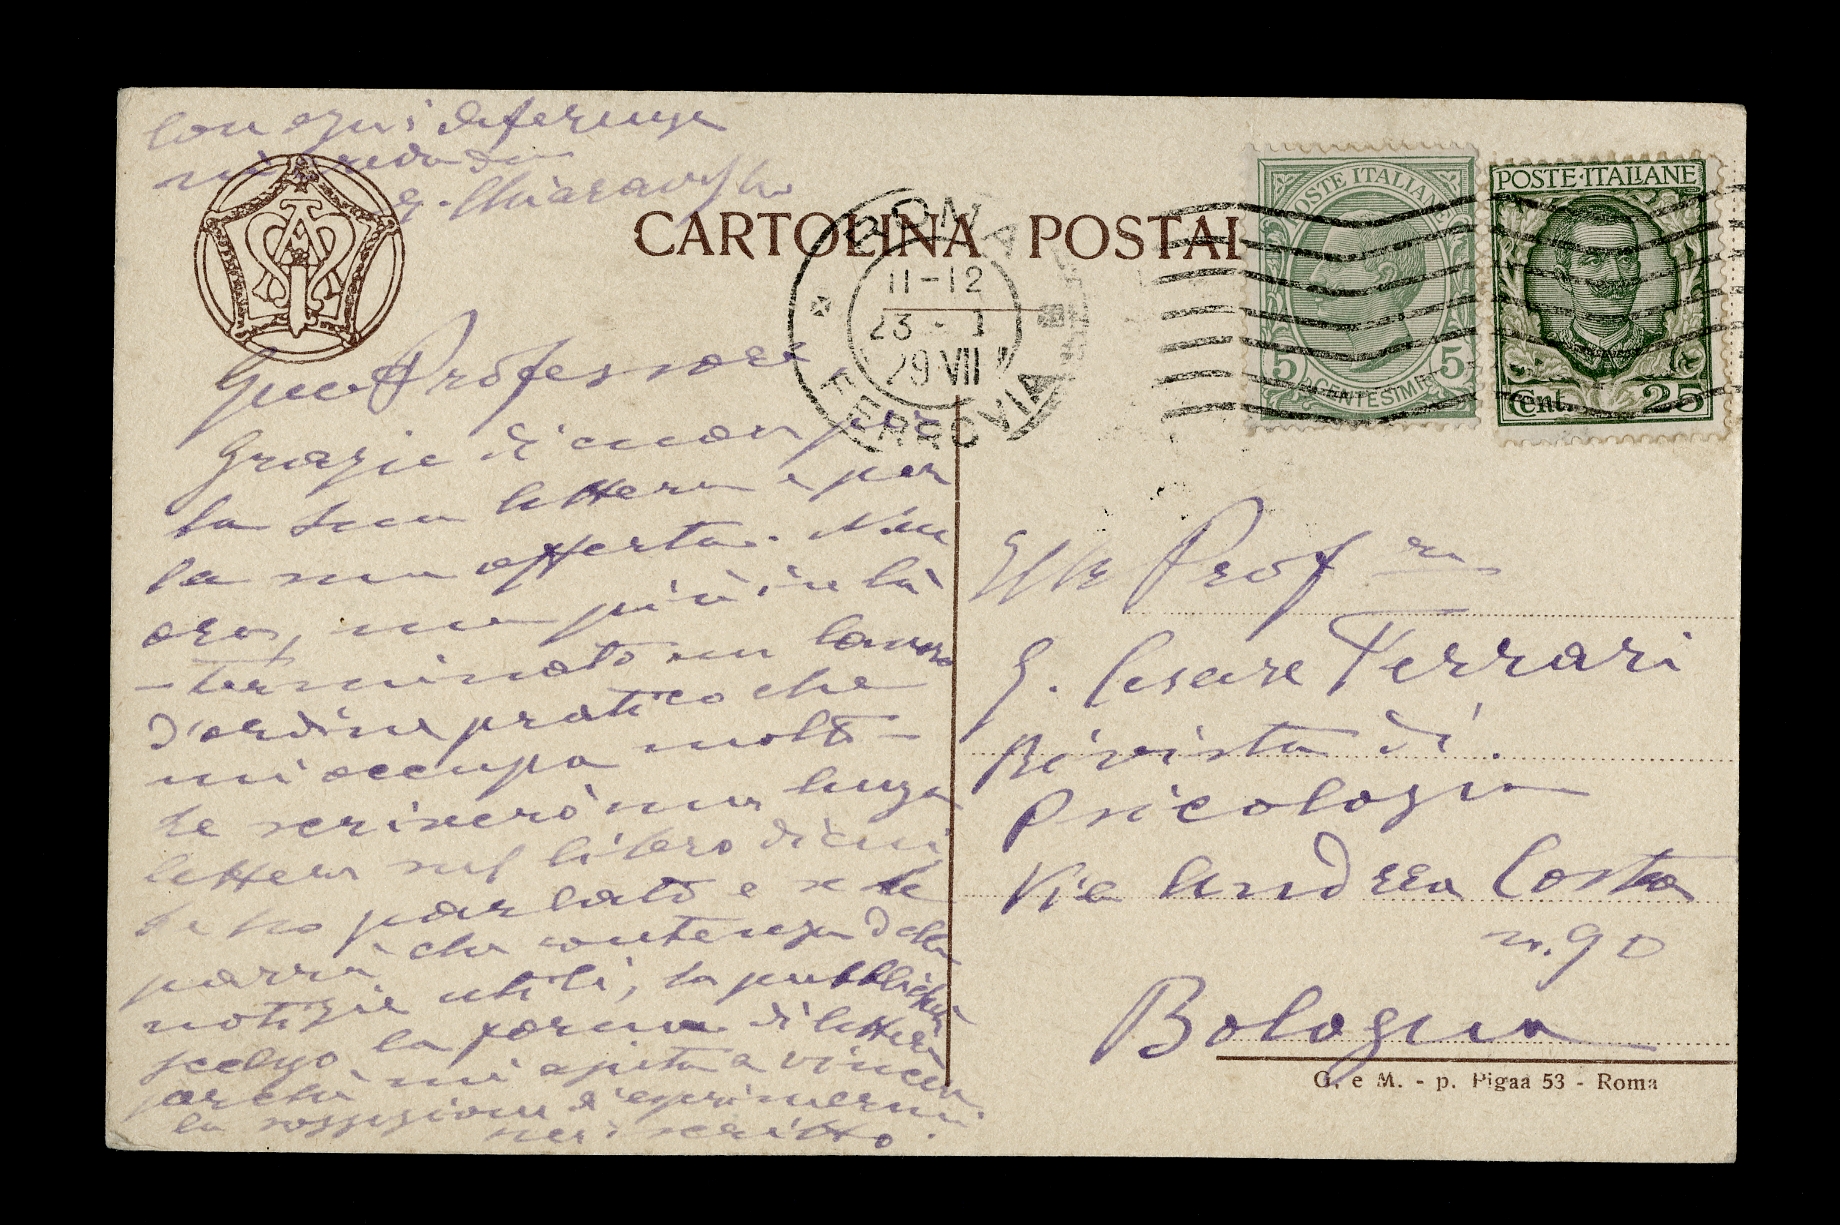 CARTOLINA POSTAL
POSTE ITALIANE
5 5
CENTESIMI
POSTE·ITALIANE
Cent. 25
ROMA
11-12
23 - 1
29 VII
FERROVIA
Con ogni deferenza
mi creda
G. Chiaraviglio
Professore
Grazie di cuore per
la sua lettera e per
la sua offerta. Non
ora, ma più in là
- terminato un lavoro
d'ordine pratico che
mi occupa molto -
le scriverò una lunga
lettera sul libro di cui
le ho parlato e se le
parrà che contenga delle
notizie utili, la pubblicherà
scelgo la forma di lettera
perché mi ajuta a vincere
la soggezione d'esprimermi
per iscritto.
Prof.
G. Cesare Ferrari
Rivista di
Psicologia
Via Andrea Costa
n. 90
Bologna
G. e M. - p. Pigaa 53 - Roma